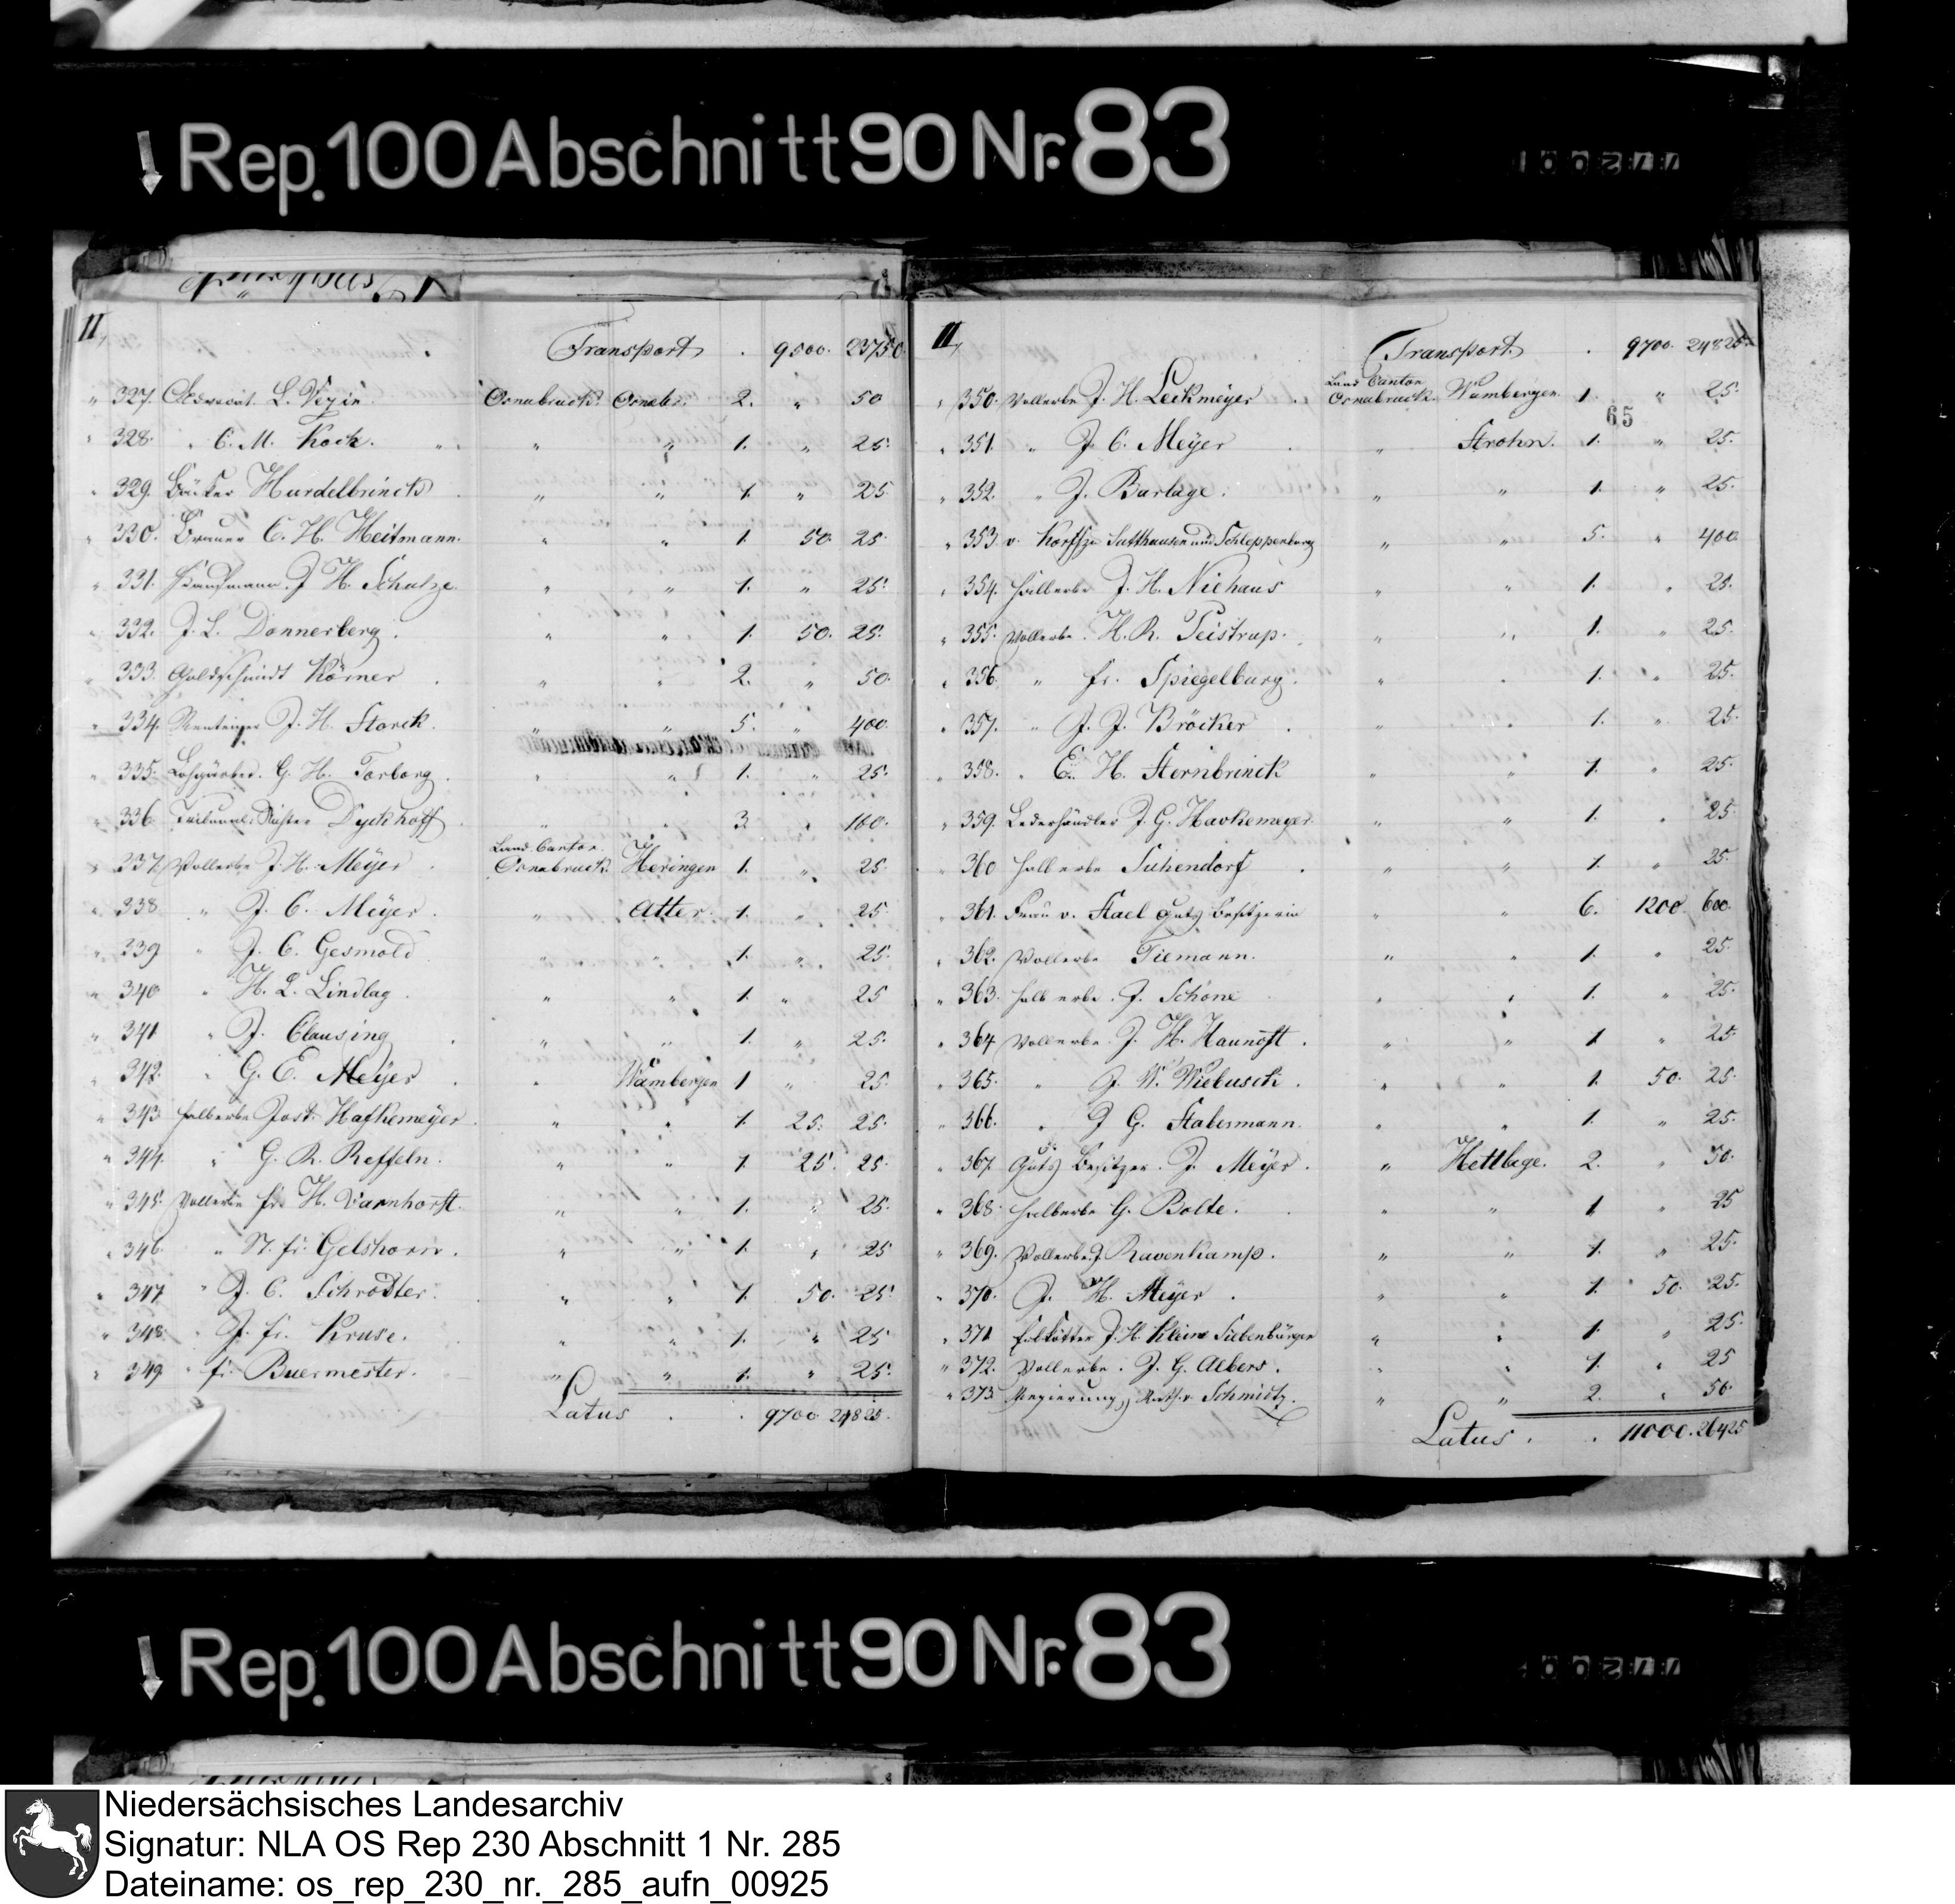 Rep. 100 Abschnitt 90 Nr. 83
II,
Transport . 9500. 23750
" 327. Advocat. L. Vezin. Osnabruck. Osnabr. 2. " 50
" 328. " C. M. Kock. " " 1. " 25.
" 329. Bäcker Hardelbrinck " " 1. " 25
" 330. Brauer C. H. Heitmann. " " 1. 50. 25.
" 331. Kaufmann J. H. Schulze. " " 1. " 25.
" 332. J. L. Donnerberg. " " 1. 50. 25.
" 333. Goldschmidt Körner " " 2. " 50.
" 334. Renteiger J. H. Storck. " " 5. " 400.
" 335. Lohgärber. G. H. Torborg. " " 1. " 25.
" 336 Tribunals Richter Dyckhoff " " 3. " 100.
Land Canton
" 337. Vollerbe J. H. Meÿer Osnabruck. Heringen 1. " 25.
" 338. " J. C. Meÿer. " Atter. 1. " 25
" 339 " J. C. Gesmold " " 1. " 25.
" 340 " H. L. Lindlag. " " 1. " 25
" 341 " J. Clausing " " 1. " 25.
" 342. " G. E. Meÿer " Wambergen 1 " 25.
" 343 Halberbe Jost Hafkemeÿer " " 1. 25. 25.
" 344. " G. R. Reffeln. " " 1. 25. 25.
" 345. Vollerbe fr. H. Varnhorst. " " 1. " 25.
" 346. " St. fr. Gelshorn. " " 1. " 25
" 347 " J. C. Schrödter. " " 1. 50. 25.
" 348. " J. fr. Kruse. " " 1. " 25
" 349 " fr. Buermester. " " 1. " 25.
Latus . . 9700 24825.
II,
Transport. . 9700. 24825.
Land Canton
" 350. Vollerbe J. H. Leckmeÿer Osnabruck. Wambergen. 1. " 25.
65
" 351. " J. C. Meÿer " Strohn. 1. " 25.
" 352. " J. Barlage. " " 1. " 25.
" 353. v. Korff zu Sutthausen und Schleppenburg " " 5. " 400
" 354. Halberbe J. H. Niehaus " " 1. " 25.
" 355. Vollerbe. H. R. Peistrup. " " 1. " 25.
" 356. " fr. Spiegelburg. " " 1. " 25.
" 357. " J. J. Bröcker " " 1. " 25.
" 358. " E. H. Sternbrinck " " 1. " 25.
" 359. Lederhändler J. G. Havkemeyer. " " 1. " 25.
" 360 Halberbe Suhendorf " " 1. " 25.
" 361. Frau v. Stael Guts besitzerin " " 6. 1200. 600.
" 362. Vollerbe Tiemann. " " 1. " 25.
" 363. Halberbe. J. Schöne " " 1. " 25.
" 364 Vollerbe. J. H. Haunost. " " 1 " 25.
" 365. " J. W. Wiebusch. " " 1. 50. 25.
" 366. " J G. Stabermann. " " 1. " 25.
" 367. Guts Besitzer. J. Meÿer. " Hettlage. 2. " 50.
" 368. Halberbe G. Bolte. " " 1 " 25
" 369. Vollerbe J. Ravenkamp. " " 1. " 25.
" 370. J. H. Meÿer. " " 1. 50. 25.
" 371 Erbkötter J. H. Kleine Siebenbürgen " " 1. " 25.
" 372. Vollerbe. J. G. Albers. " " 1. " 25
" 373. Regierungs Rath v. Schmidtz. " " 2. " 50.
Latus . . 11000. 26425
Rep. 100 Abschnitt 90 Nr. 83
Niedersächsisches Landesarchiv
Signatur: NLA OS Rep 230 Abschnitt 1 Nr. 285
Dateiname: os_rep_230_nr._285_aufn_00925